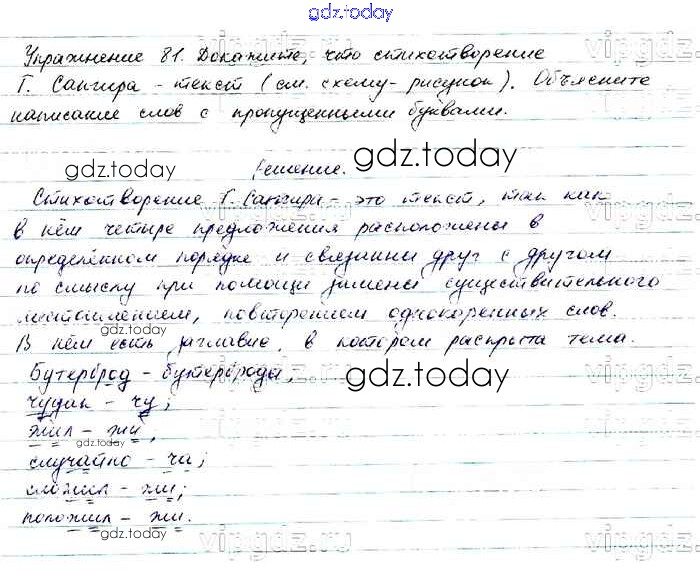 gdz.today
Упражнение 81. Докажите, что стихотворение
Г. Сапгира - текст (см. схему- рисунок). Объясните
написание слов с пропущенными буквами.
gdz.today Решение. gdz.today
Стихотворение Г. Сапгира - это текст, так как
в нём четыре предложения расположены в
определённом порядке и связанны друг с другом
по смыслу при помощи замены существительного
местоимением, повторением однокоренных слов.
gdz.today
В нём есть заглавие, в котором раскрыта тема.
Бутерброд - бутерброды,
gdz.today
чудак - чу;
жил - жи;
gdz.today
случайно - ча;
сложил - жи;
положил - жи.
gdz.today
vipgdz.ru